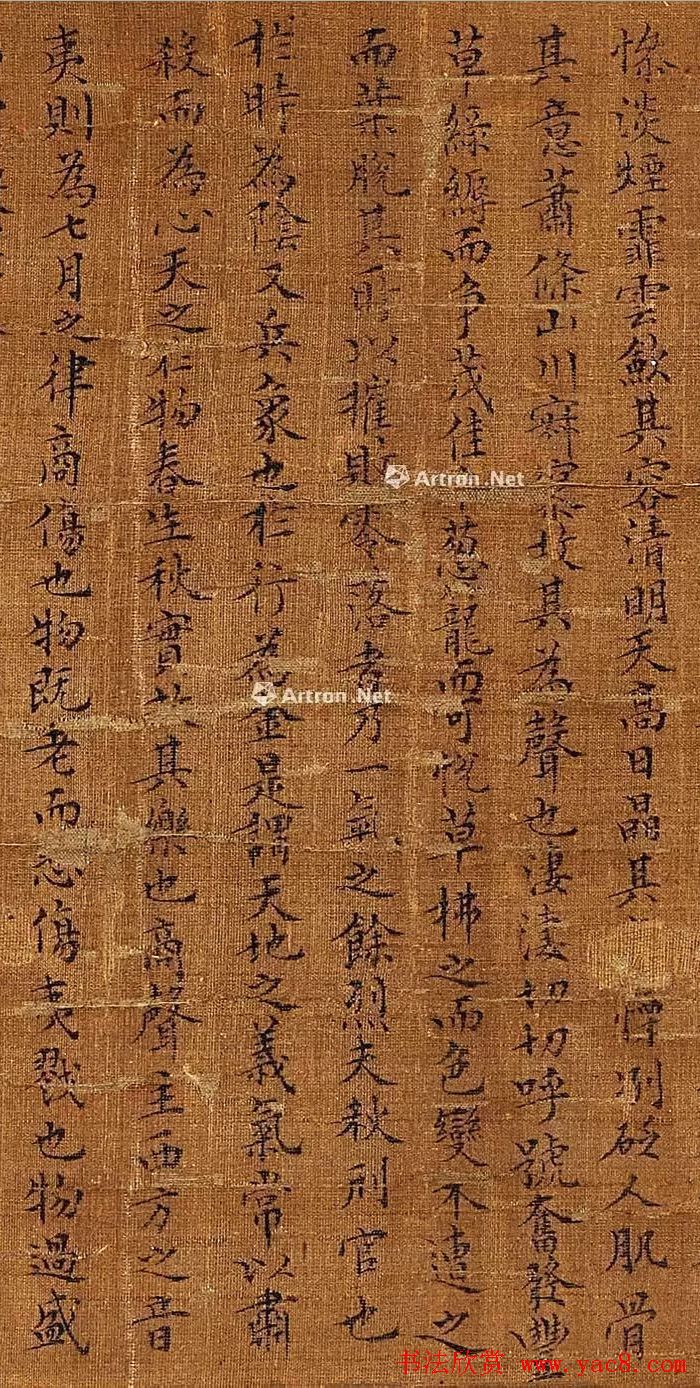 慘淡煙霏雲歛其容清明天高日晶其慄冽砭人肌骨
其意蕭條山川寂寥故其為聲也淒淒切切呼號奮發豐
草綠縟而爭茂佳葱蘢而可悅草拂之而色變木遭之
而葉脫其所以摧敗零落者乃一氣之餘烈夫秋刑官也
於時為陰又兵象也於行為金是謂天地之義氣常以肅
殺而為心天之於物春生秋實故其樂也商聲主西方之音
夷則為七月之律商傷也物既老而悲傷夷戮也物過盛
Artron.Net
Artron.Net
书法欣赏 www.yac8.com